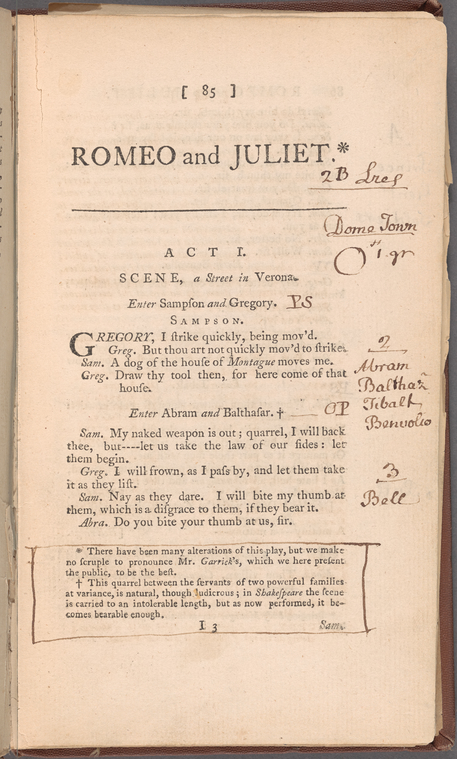 [ 85 ]
ROMEO and JULIET.*
2B
Dome Town
1. gr
ACT I.
SCENE, a Street in Verona.
Enter Sampson and Gregory. PS
SAMPSON.
GREGORY, I ſtrike quickly, being mov'd.
Greg. But thou art not quickly mov'd to ſtrike.
Sam. A dog of the houſe of Montague moves me.
Greg. Draw thy tool then, for here come of that
houſe.
2
Abram
Balthaz
Tibalt
Benvolio
Enter Abram and Balthaſar. † OP
Sam. My naked weapon is out; quarrel, I will back
thee, but----let us take the law of our ſides: let
them begin.
Greg. I will frown, as I paſs by, and let them take
it as they liſt.
3
Bell
Sam. Nay as they dare. I will bite my thumb at
them, which is a diſgrace to them, if they bear it.
Abra. Do you bite your thumb at us, ſir.
* There have been many alterations of this play, but we make
no ſcruple to pronounce Mr. Garrick's, which we here preſent
the public, to be the beſt.
† This quarrel between the ſervants of two powerful families
at variance, is natural, though ludicrous; in Shakeſpeare the ſcene
is carried to an intolerable length, but as now performed, it be-
comes bearable enough.
I 3
Sam.